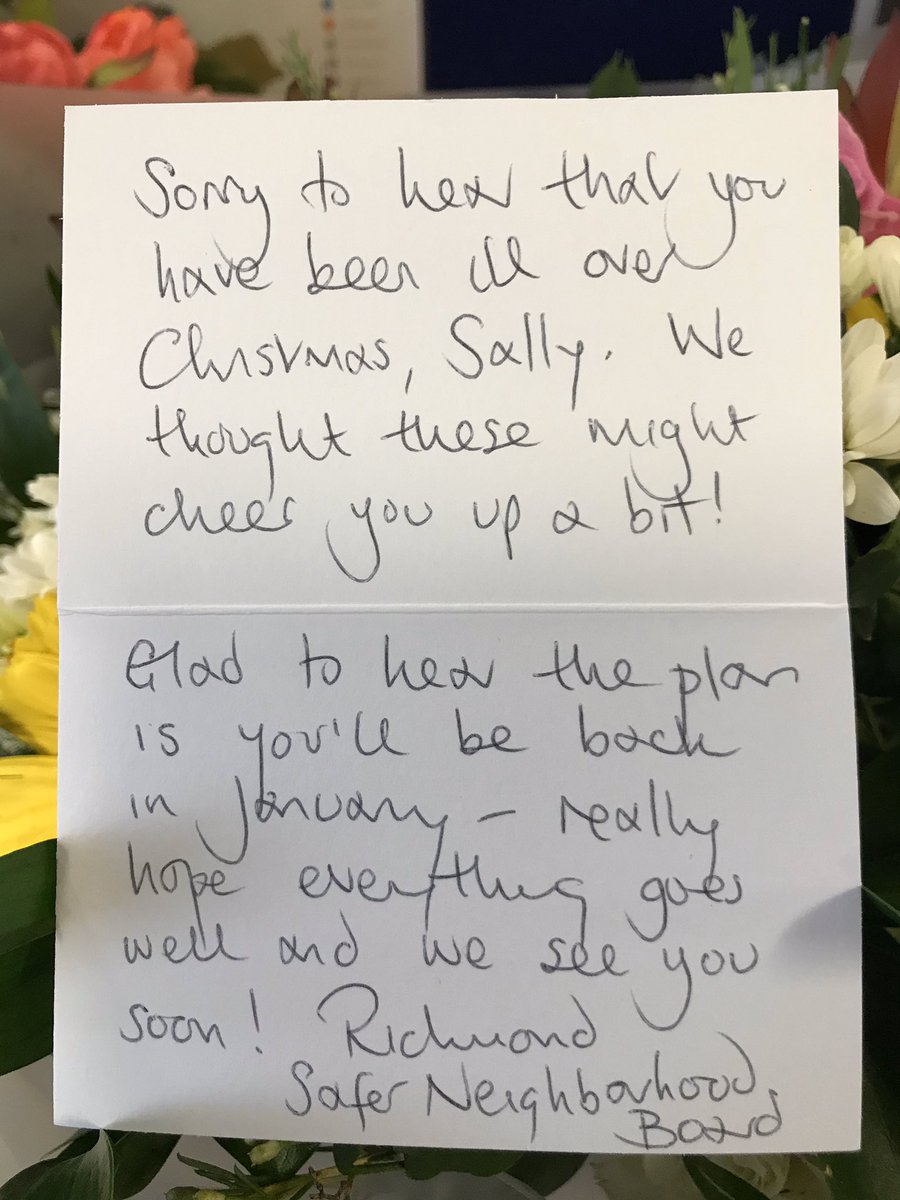 Sorry to hear that you
have been ill over
Christmas, Sally. We
thought these might
cheer you up a bit!
Glad to hear the plan
is you'll be back
in January – really
hope everything goes
well and we see you
soon! Richmond
Safer Neighborhood
Board